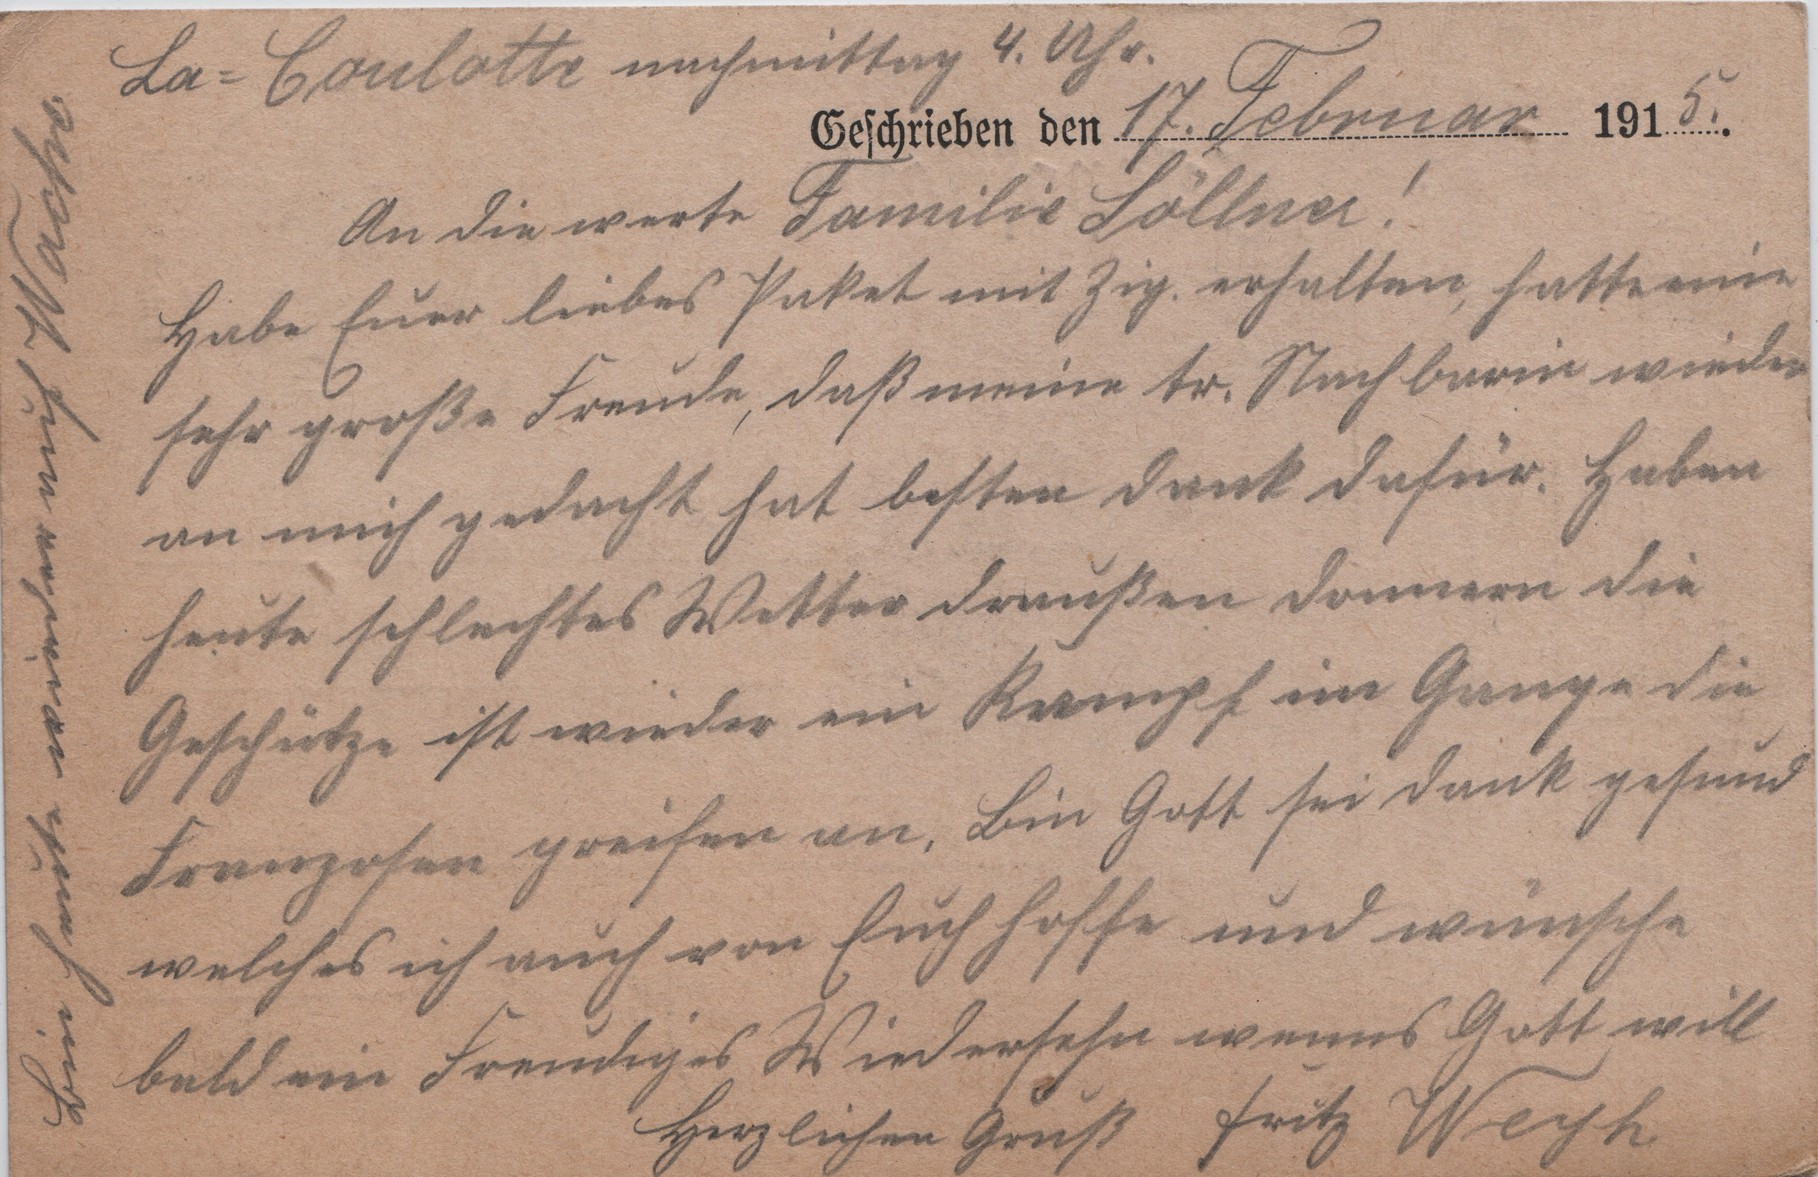 La-Coulotte nachmittag 4. Uhr.
Geschrieben den 17. Februar 1915.
An die werte Familie Söllner!
Habe Euer liebes Paket mit Zig. erhalten, hatte eine
sehr große Freude, daß meine tr. Nachbarin wieder
an mich gedacht hat besten Dank dafür. Haben
heute schlechtes Wetter draußen donnern die
Geschütze ist wieder ein Kampf im Gange die
Franzosen greifen an. Bin Gott sei Dank gesund
welches ich auch von Euch hoffe und wünsche
bald ein Freudiges Wiedersehn wenns Gott will
Herzlichen Gruß Fritz Weyh